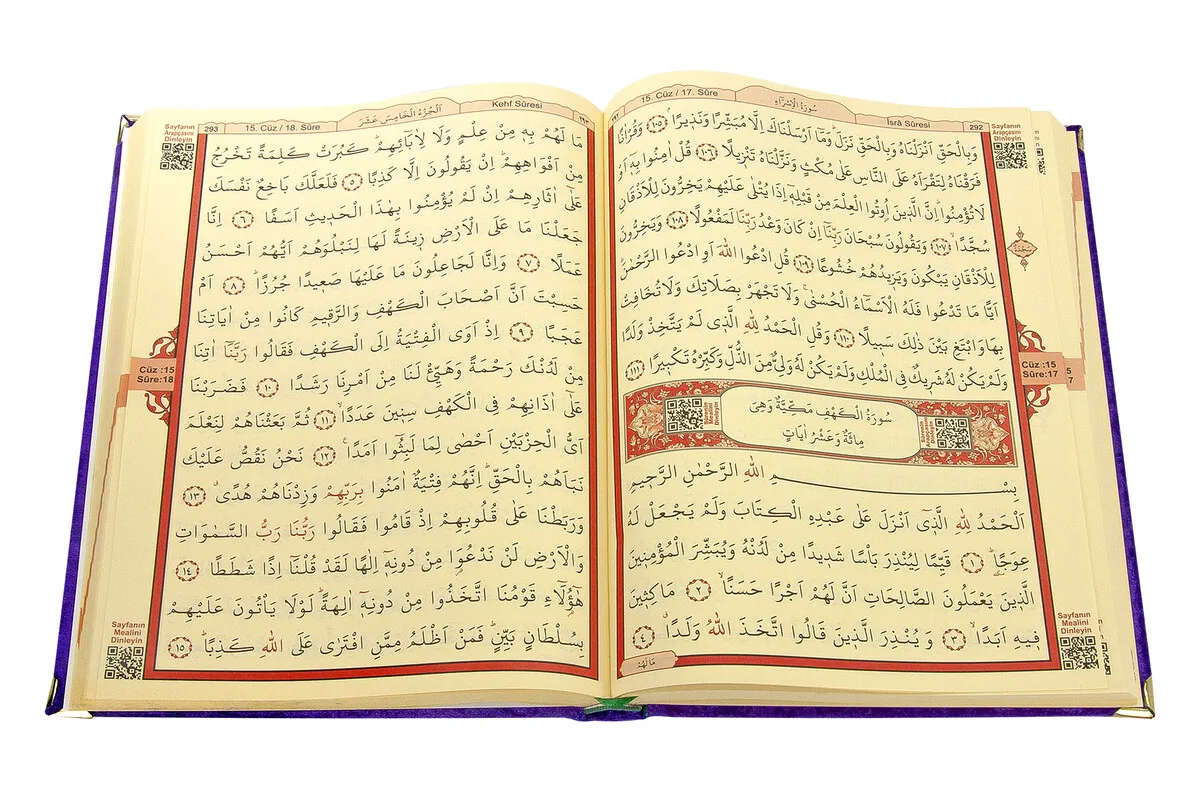 15. Cüz / 17. Sûre
سُورَةُ الْاِسْرَاءِ
İsrâ Sûresi
292
Sayfanın
Arapçasını
Dinleyin
وَبِالْحَقِّ اَنْزَلْنَاهُ وَبِالْحَقِّ نَزَلَۜ وَمَٓا اَرْسَلْنَاكَ اِلَّا مُبَشِّرًا وَنَذ۪يرًاۢ ﴿١٠٥﴾ وَقُرْاٰنًا
فَرَقْنَاهُ لِتَقْرَاَهُ عَلَى النَّاسِ عَلٰى مُكْثٍ وَنَزَّلْنَاهُ تَنْز۪يلًا ﴿١٠٦﴾ قُلْ اٰمِنُوا بِه۪ٓ اَوْ
لَا تُؤْمِنُواۜ اِنَّ الَّذ۪ينَ اُوتُوا الْعِلْمَ مِنْ قَبْلِه۪ٓ اِذَا يُتْلٰى عَلَيْهِمْ يَخِرُّونَ لِلْاَذْقَانِ
سُجَّدًاۙ ﴿١٠٧﴾ وَيَقُولُونَ سُبْحَانَ رَبِّنَٓا اِنْ كَانَ وَعْدُ رَبِّنَا لَمَفْعُولًا ﴿١٠٨﴾ وَيَخِرُّونَ
لِلْاَذْقَانِ يَبْكُونَ وَيَز۪يدُهُمْ خُشُوعًا ﴿١٠٩﴾ قُلِ ادْعُوا اللّٰهَ اَوِ ادْعُوا الرَّحْمٰنَۜ
اَيًّا مَا تَدْعُوا فَلَهُ الْاَسْمَٓاءُ الْحُسْنٰىۚ وَلَا تَجْهَرْ بِصَلَاتِكَ وَلَا تُخَافِتْ
بِهَا وَابْتَغِ بَيْنَ ذٰلِكَ سَب۪يلًا ﴿١١٠﴾ وَقُلِ الْحَمْدُ لِلّٰهِ الَّذ۪ي لَمْ يَتَّخِذْ وَلَدًا
وَلَمْ يَكُنْ لَهُ شَر۪يكٌ فِي الْمُلْكِ وَلَمْ يَكُنْ لَهُ وَلِيٌّ مِنَ الذُّلِّ وَكَبِّرْهُ تَكْب۪يرًا ﴿١١١﴾
سُورَةُ الْكَهْفِ مَكِّيَّةٌ وَهِيَ
مِائَةٌ وَعَشْرُ اٰيَاتٍ
بِسْمِ اللّٰهِ الرَّحْمٰنِ الرَّح۪يمِ
اَلْحَمْدُ لِلّٰهِ الَّذ۪ٓي اَنْزَلَ عَلٰى عَبْدِهِ الْكِتَابَ وَلَمْ يَجْعَلْ لَهُ
عِوَجًاۜ ﴿١﴾ قَيِّمًا لِيُنْذِرَ بَأْسًا شَد۪يدًا مِنْ لَدُنْهُ وَيُبَشِّرَ الْمُؤْمِن۪ينَ
الَّذ۪ينَ يَعْمَلُونَ الصَّالِحَاتِ اَنَّ لَهُمْ اَجْرًا حَسَنًاۙ ﴿٢﴾ مَاكِث۪ينَ
ف۪يهِ اَبَدًاۙ ﴿٣﴾ وَيُنْذِرَ الَّذ۪ينَ قَالُوا اتَّخَذَ اللّٰهُ وَلَدًاۗ ﴿٤﴾
مَا لَهُمْ
Cüz :15
Sûre:17
Sayfanın
Mealini
Dinleyin
Sayfanın
Arapçasını
Dinleyin
293
15. Cüz / 18. Sûre
اَلْجُزْءُ الْخَامِسَ عَشَرَ
Kehf Sûresi
مَا لَهُمْ بِه۪ مِنْ عِلْمٍ وَلَا لِاٰبَٓائِهِمْۜ كَبُرَتْ كَلِمَةً تَخْرُجُ
مِنْ اَفْوَاهِهِمْۜ اِنْ يَقُولُونَ اِلَّا كَذِبًا ﴿٥﴾ فَلَعَلَّكَ بَاخِعٌ نَفْسَكَ
عَلٰٓى اٰثَارِهِمْ اِنْ لَمْ يُؤْمِنُوا بِهٰذَا الْحَد۪يثِ اَسَفًا ﴿٦﴾ اِنَّا
جَعَلْنَا مَا عَلَى الْاَرْضِ ز۪ينَةً لَهَا لِنَبْلُوَهُمْ اَيُّهُمْ اَحْسَنُ
عَمَلًا ﴿٧﴾ وَاِنَّا لَجَاعِلُونَ مَا عَلَيْهَا صَع۪يدًا جُرُزًاۜ ﴿٨﴾ اَمْ
حَسِبْتَ اَنَّ اَصْحَابَ الْكَهْفِ وَالرَّق۪يمِ كَانُوا مِنْ اٰيَاتِنَا
عَجَبًا ﴿٩﴾ اِذْ اَوَى الْفِتْيَةُ اِلَى الْكَهْفِ فَقَالُوا رَبَّنَٓا اٰتِنَا
مِنْ لَدُنْكَ رَحْمَةً وَهَيِّئْ لَنَا مِنْ اَمْرِنَا رَشَدًا ﴿١٠﴾ فَضَرَبْنَا
عَلٰٓى اٰذَانِهِمْ فِي الْكَهْفِ سِن۪ينَ عَدَدًاۙ ﴿١١﴾ ثُمَّ بَعَثْنَاهُمْ لِنَعْلَمَ
اَيُّ الْحِزْبَيْنِ اَحْصٰى لِمَا لَبِثُٓوا اَمَدًا۟ ﴿١٢﴾ نَحْنُ نَقُصُّ عَلَيْكَ
نَبَاَهُمْ بِالْحَقِّۜ اِنَّهُمْ فِتْيَةٌ اٰمَنُوا بِرَبِّهِمْ وَزِدْنَاهُمْ هُدًىۗ ﴿١٣﴾
وَرَبَطْنَا عَلٰى قُلُوبِهِمْ اِذْ قَامُوا فَقَالُوا رَبُّنَا رَبُّ السَّمٰوَاتِ
وَالْاَرْضِ لَنْ نَدْعُوَ۬ا مِنْ دُونِه۪ٓ اِلٰهًا لَقَدْ قُلْنَٓا اِذًا شَطَطًا ﴿١٤﴾
هٰٓؤُ۬لَٓاءِ قَوْمُنَا اتَّخَذُوا مِنْ دُونِه۪ٓ اٰلِهَةًۜ لَوْلَا يَأْتُونَ عَلَيْهِمْ
بِسُلْطَانٍ بَيِّنٍۜ فَمَنْ اَظْلَمُ مِمَّنِ افْتَرٰى عَلَى اللّٰهِ كَذِبًاۜ ﴿١٥﴾
Cüz :15
Sûre:18
Sayfanın
Mealini
Dinleyin